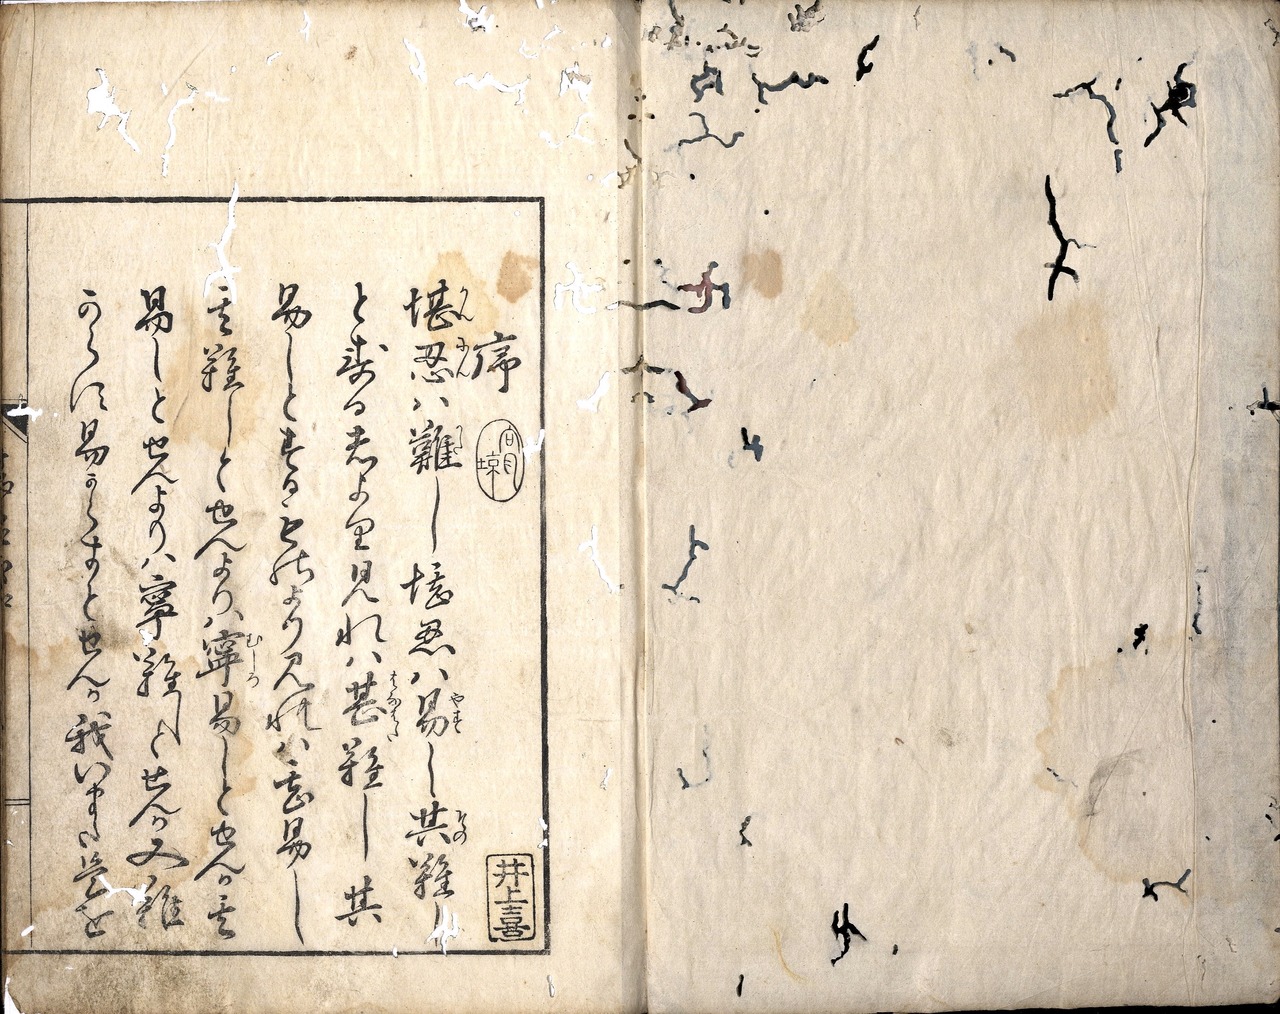 序
堪忍ハ難し堪忍ハ易し其難し
とする者より見れハ甚難し其
易しとするものより見れハ甚易し
其難しとせんよりハ寧易しとせんか其
易しとせんよりハ寧難しとせんか又難
からす易からすとせんか我いまた是を
井上喜